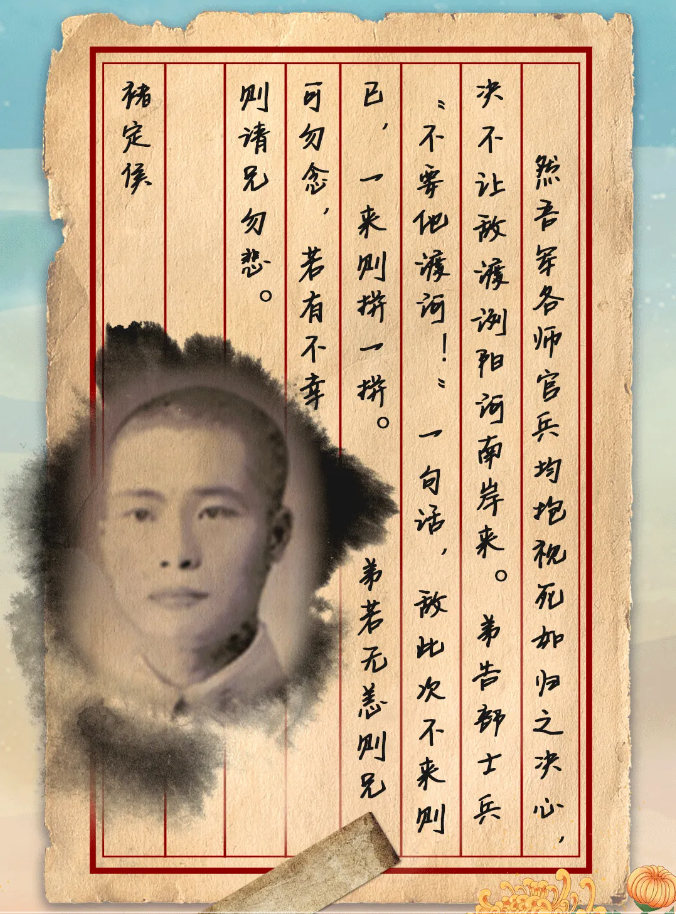 然吾军各师官兵均抱视死如归之决心，
决不让敌渡浏阳河南岸来。弟告部士兵
“不要他渡河！”一句话，敌此次不来则
已，一来则拼一拼。弟若无恙则兄
可勿念，若有不幸
则请兄勿悲。
褚定侯